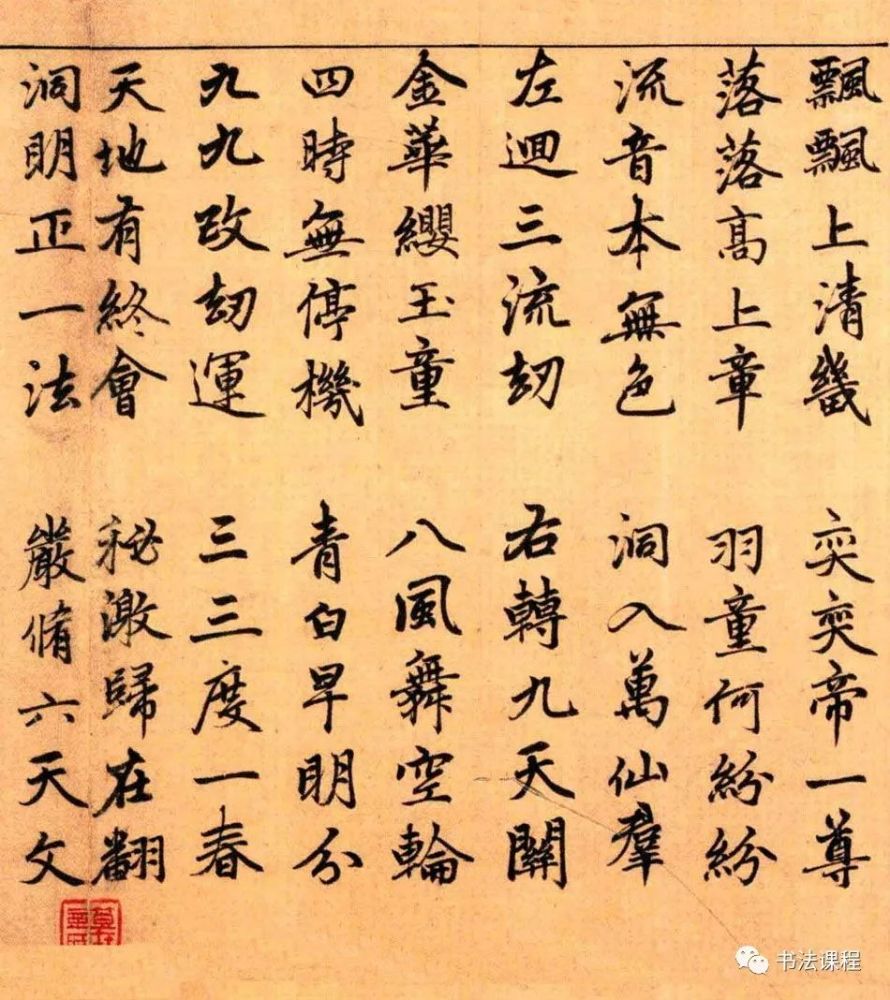 飄飄上清畿 奕奕帝一尊
落落高上章 羽童何紛紛
流音本無色 洞入萬仙羣
左迴三流劫 右轉九天關
金華纓玉童 八風舞空輪
四時無停機 青白早明分
九九改劫運 三三度一春
天地有終會 秘激歸在翻
洞明正一法 嚴脩六天文
书法课程